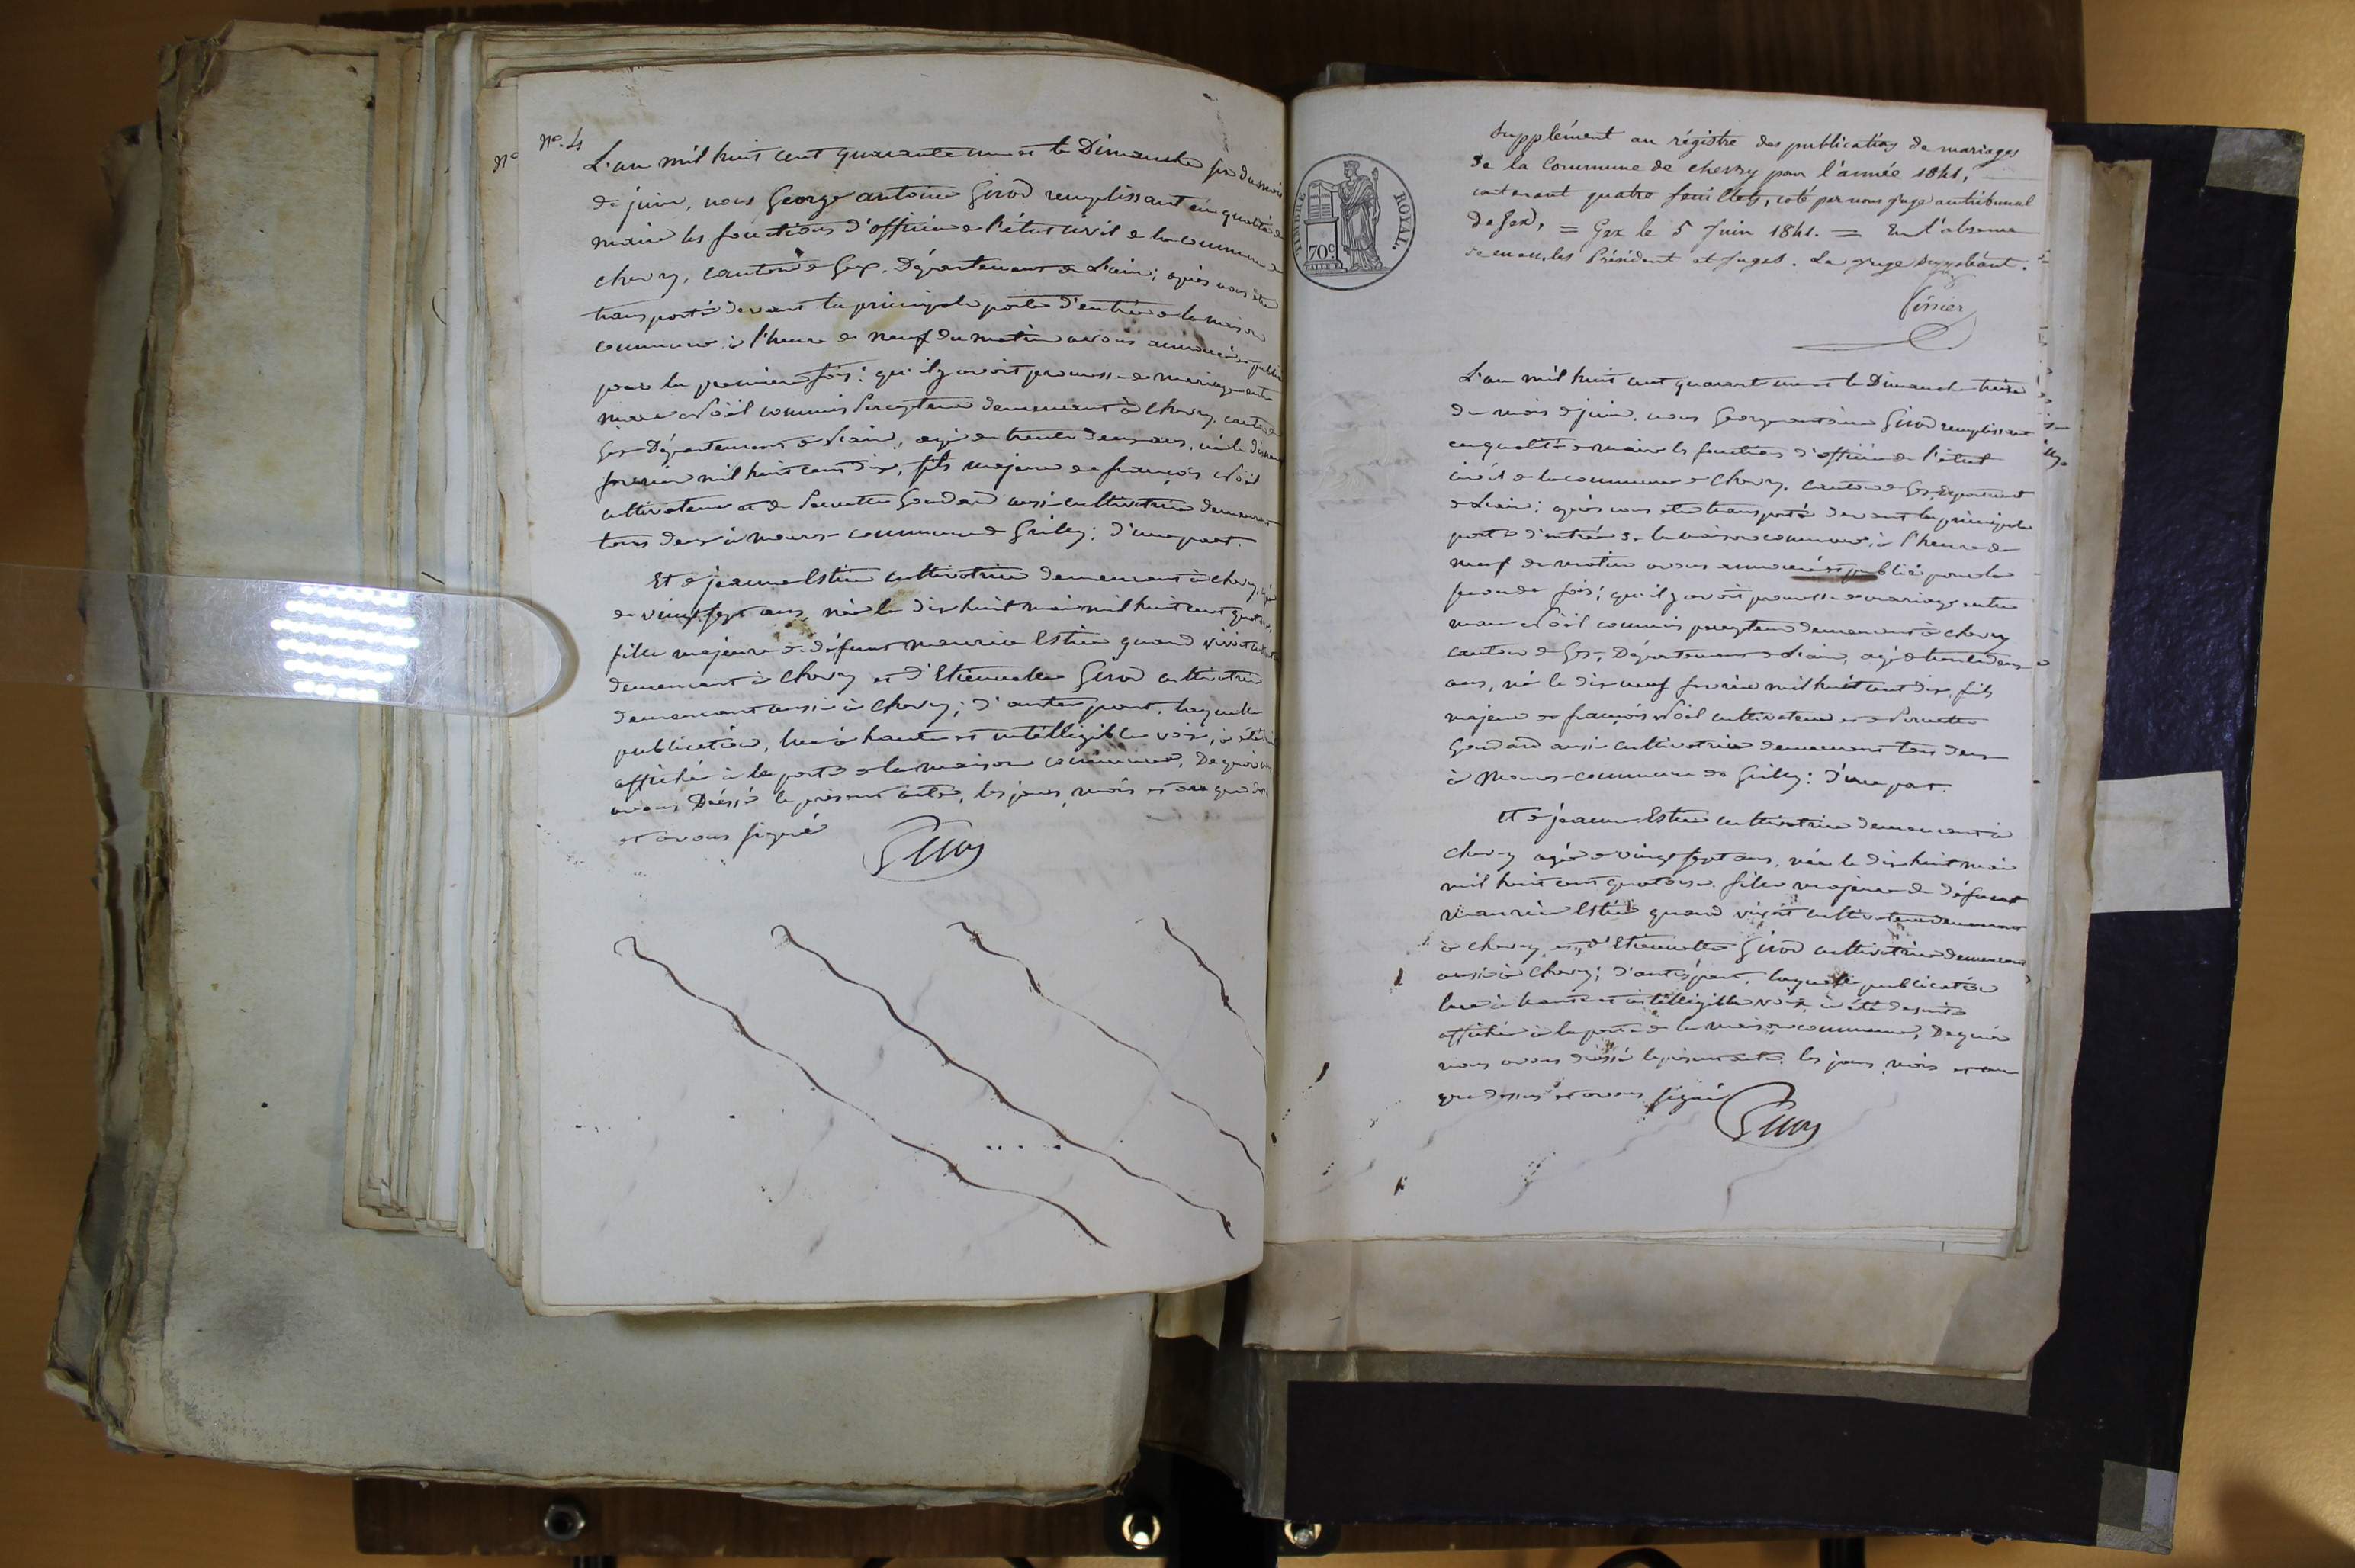 N°
N°. 4
L'an mil huit cent quarante un et le Dimanche six du mois
de juin, nous George antoine Girod remplissant en qualité de
maire les fonctions d'officier de l'état civil de la commune de
chevry, canton de Gex, Département de L'ain; après nous être
transporté devant la principale porte d'entrée de la maison
commune à l'heure de neuf du matin avons annoncé et publié
pour la première fois: qu'il y avoit promesse de mariage entre
marc Noël commis Percepteur demeurant à chevry, canton de
Gex Département de L'ain, agé de trente deux ans, né le dix neuf
fevrier mil huit cent dix, fils majeur de françois Noël
cultivateur et de Pernette Goudard aussi cultivatrice demeurant
tous deux à mours commune de Grilly; d'une part.
Et de jeanne Estier cultivatrice demeurant à chevry, agée
de vingt sept ans, née le dix huit mai mil huit cent quatorze,
fille majeure de défunt maurice Estier quand vivoit
demeurant à chevry et d'Etiennette Girod cultivatrice
demeurant aussi à chevry; d'autre part, laquelle
publication, lue à haute et intelligible voix, à été
affichée à la porte de la maison commune, De quoi nous
avons Dressé le présent acte, les jour, mois et an que dessus
et avons signé
Girod
TIMBRE ROYAL.
70c
Supplément au régistre des publications de mariages
de la Commune de chevry pour l'année 1841,
contenant quatre feuillets, coté par nous juge au tribunal
de Gex, = Gex le 5 Juin 1841. = En l'absence
de mm. les Président et Juges. Le Juge Suppléant.
L'an mil huit cent quarant un et le Dimanche treize
du mois de juin, nous George antoine Girod remplissant
en qualité de maire les fonctions d'officier de l'état
civil de la commune de chevry, canton de Gex, département
de L'ain; après nous être transporté devant la principale
porte d'entrée de la maison commune, à l'heure de
neuf du matin avons annoncé et publié pour la
seconde fois; qu'il y avoit promesse de mariage entre
marc Noël commis percepteur demeurant à chevry
canton de Gex, Département de L'ain, agé de trente deux
ans, né le dix neuf fevrier mil huit cent dix, fils
majeur de françois Noël cultivateur et de Pernette
Goudard aussi cultivatrice demeurant tous deux
à mours commune de Grilly: d'une part.
Et de jeanne Estier cultivatrice demeurant à
chevry agée de vingt sept ans, née le dix huit mai
mil huit cent quatorze, fille majeure de défunt
maurice Estier quand vivoit cultivateur demeurant
à chevry et d'Etiennette Girod cultivatrice demeurant
aussi à chevry; d'autre part, laquelle publication
lue à haute et intelligible voix à été de suite
affichée à la porte de la maison commune, De quoi
nous avons dressé le présent acte, les jour, mois et an
que dessus et avons signé
Girod